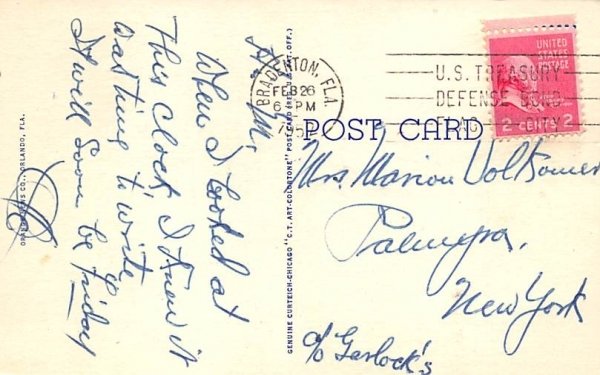 Hi M.
When I looked at
this clock, I knew it
was thing to write
It will soon be Friday
ORANGE NEWS CO., ORLANDO, FLA.
GENUINE CURTEICH-CHICAGO "C.T. ART-COLORTONE" POST CARD (REG. U.S. PAT. OFF.)
BRADENTON, FLA.
FEB 26
6 PM
195
U.S. TREASURY
DEFENSE BOND
UNITED
STATES
POSTAGE
2 CENTS 2
POST CARD
Mrs. Marion Volkomer
Palmyra,
New York
c/o Garlock's